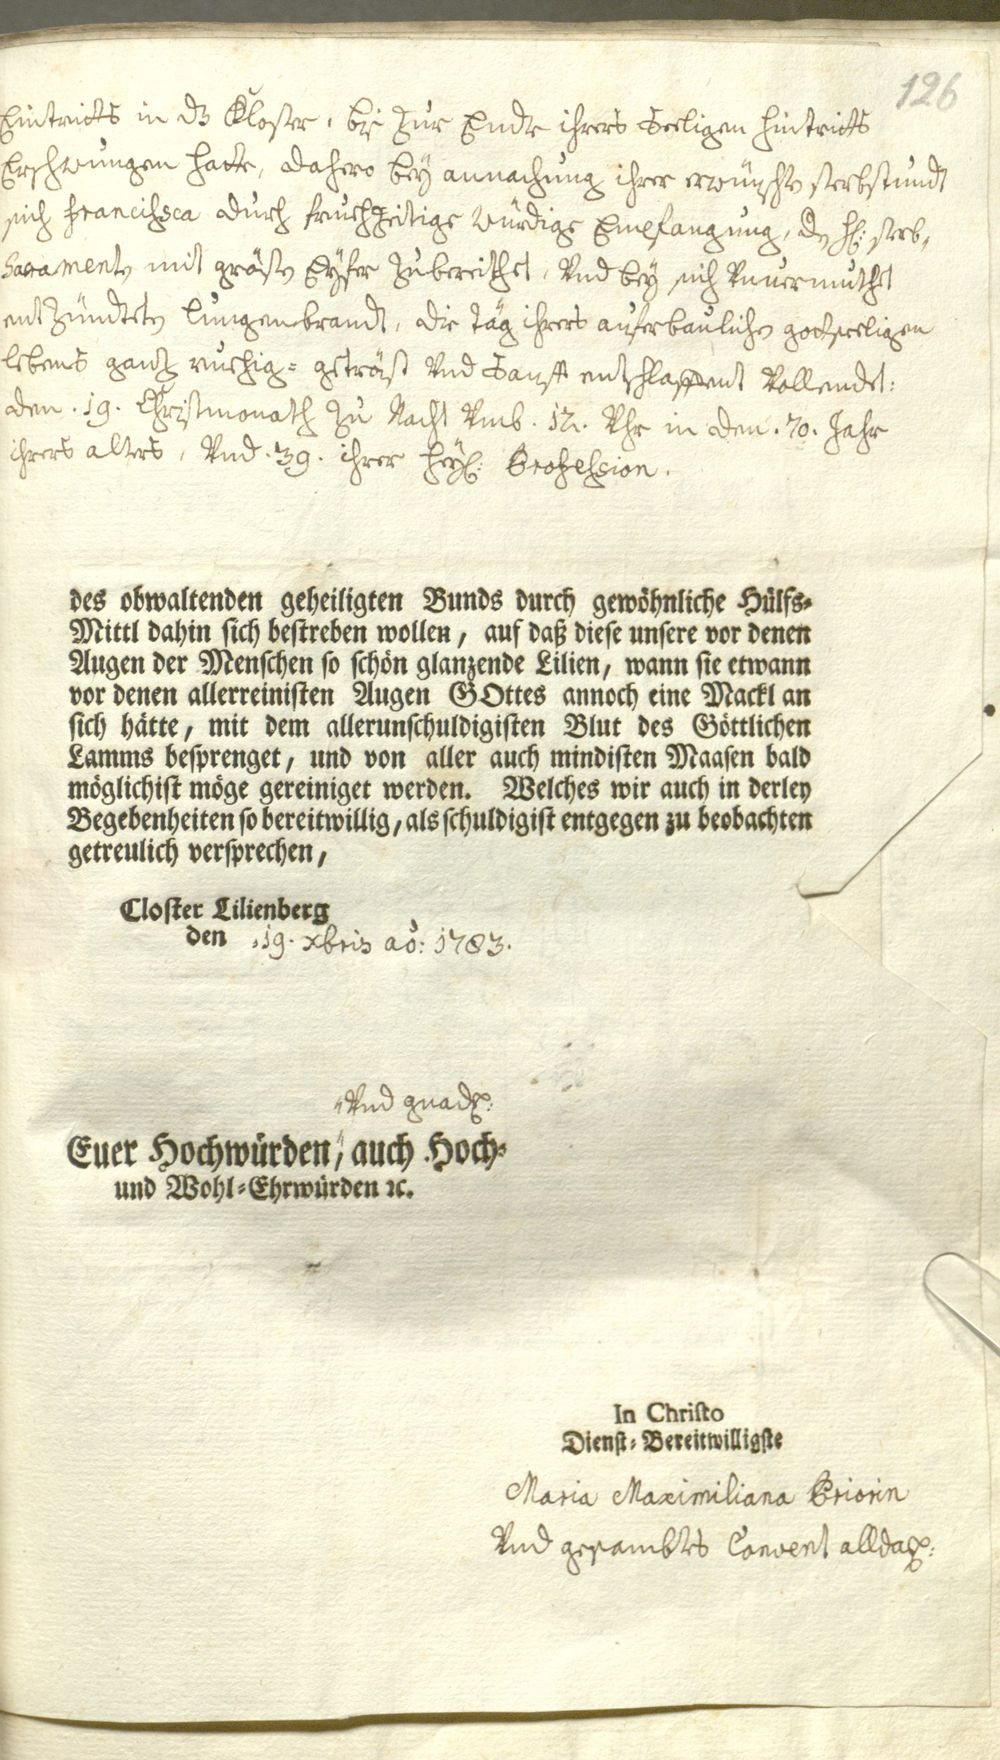 126
Eintritts in dz Kloster, biß zur Ende ihrers Seeligen hintritts
Erschwungen hatte, dahero bey annachung ihrer erwünschte sterbstundt
sich Francisca durch fruehzeitige würdige Empfangung, der hl: sterb,
Sacramenten mit gröster Eyfer zubereithet, Vnd bey sich Vnuermuthet
entzündteten lungenbrandt, die täg ihrers auferbaulichen gottseeligen
lebens ganz ruehig= getröst Vnd Sanfft entschlaffent Vollendet:
den .19. Christmonath zu Nacht Vmb .12. Vhr in den .70. Jahr
ihrers alters, Vnd .39. ihrer heyl: Profession.
des obwaltenden geheiligten Bunds durch gewöhnliche Hülfs-
Mittl dahin sich bestreben wollen, auf daß diese unsere vor denen
Augen der Menschen so schön glanzende Lilien, wann sie etwann
vor denen allerreinisten Augen GOttes annoch eine Mackl an
sich hätte, mit dem allerunschuldigisten Blut des Göttlichen
Lamms besprenget, und von aller auch mindisten Maasen bald
möglichist möge gereiniget werden. Welches wir auch in derley
Begebenheiten so bereitwillig, als schuldigist entgegen zu beobachten
getreulich versprechen,
Closter Lilienberg
den .19. xbris aõ: 1783.
Vnd gnad:
Euer Hochwürden, auch Hoch-
und Wohl-Ehrwürden ꝛc.
In Christo
Dienst-Bereitwilligste
Maria Maximiliana Priorin
Vnd gesambtes Convent allda: